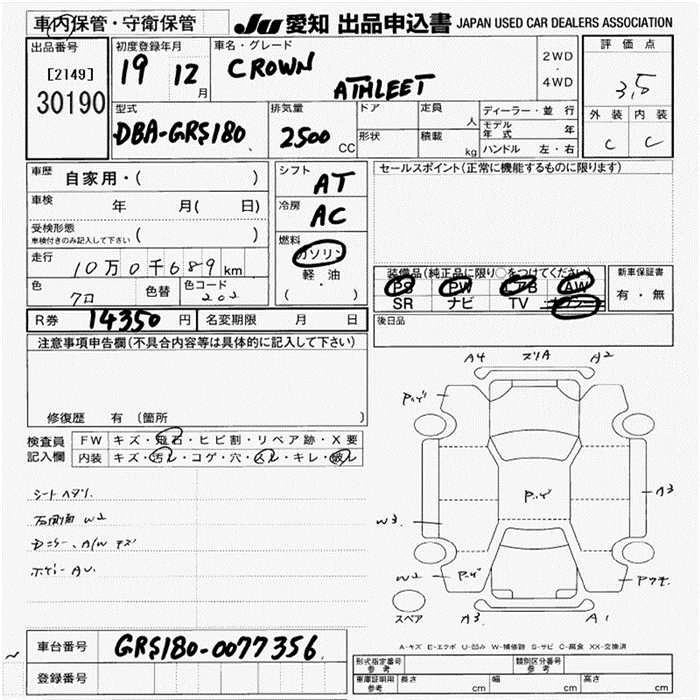 車内保管・守衛保管
JU 愛知 出品申込書 JAPAN USED CAR DEALERS ASSOCIATION
出品番号
[2149]
30190
初度登録年月
19 12月
車名・グレード
CROWN
ATHLEET
2WD
・
4WD
評価点
3,5
外装 内装
C C
型式
DBA-GRS180
排気量
2500 CC
ドア 定員 人
形状 積載 kg
ディーラー・並行
モデル年式 年
ハンドル 左・右
車歴 自家用・( )
車検 年 月( 日)
受検形態
車検付きのみ記入して下さい ( )
走行 10万0千689km
色 クロ 色替 色コード 202
シフト AT
冷房 AC
燃料
ガソリン
軽・油
( )
セールスポイント(正常に機能するものに限ります)
装備品(純正品に限り○をつけてください)
PS PW エアB AW
SR ナビ TV
新車保証書
有・無
後日品
R券 14350円 名変期限 月 日
注意事項申告欄(不具合内容等は具体的に記入して下さい)
修復歴 有 (箇所 )
検査員記入欄
FW キズ・飛石・ヒビ割・リペア跡・X要
内装 キズ・汚レ・コゲ・穴・スレ・キレ・破レ
シートヘタリ
右側面 W2
A/W キズ
A4 スリA A2
A3
W3
W2
A3 A1
スペア
A-キズ E-エクボ U-凹み W-補修跡 S-サビ C-腐食 XX-交換済
車台番号 GRS180-0077356
登録番号
形式指定番号 参考
類別区分番号 参考
車庫証明用 参考 長さ cm 幅 cm 高さ cm